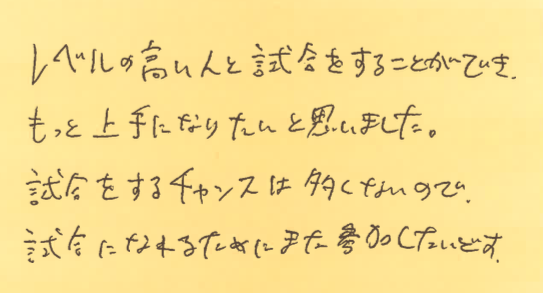 レベルの高い人と試合をすることができ、
もっと上手になりたいと思いました。
試合をするチャンスは多くないので、
試合になれるためにまた参加したいです。